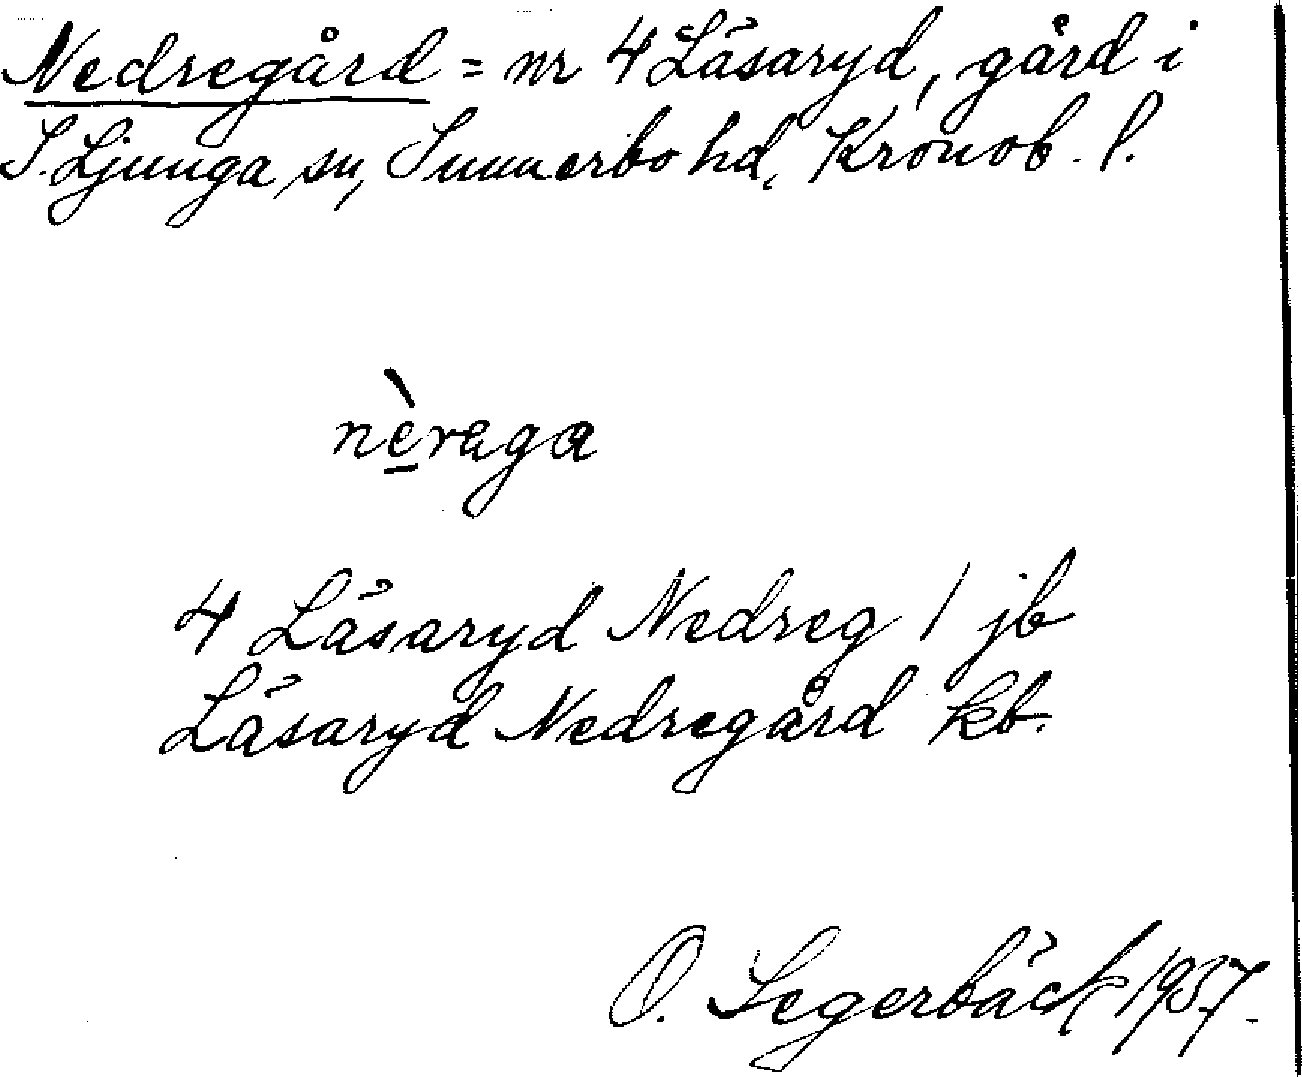 Nedregård = nr 4 Läsaryd, gård i
S. Ljunga sn, Sunnerbo hd, Kronob. l.
nèraga
4 Läsaryd Nedreg 1 jb
Läsaryd Nedregård kb.
O. Segerbäck 1937.